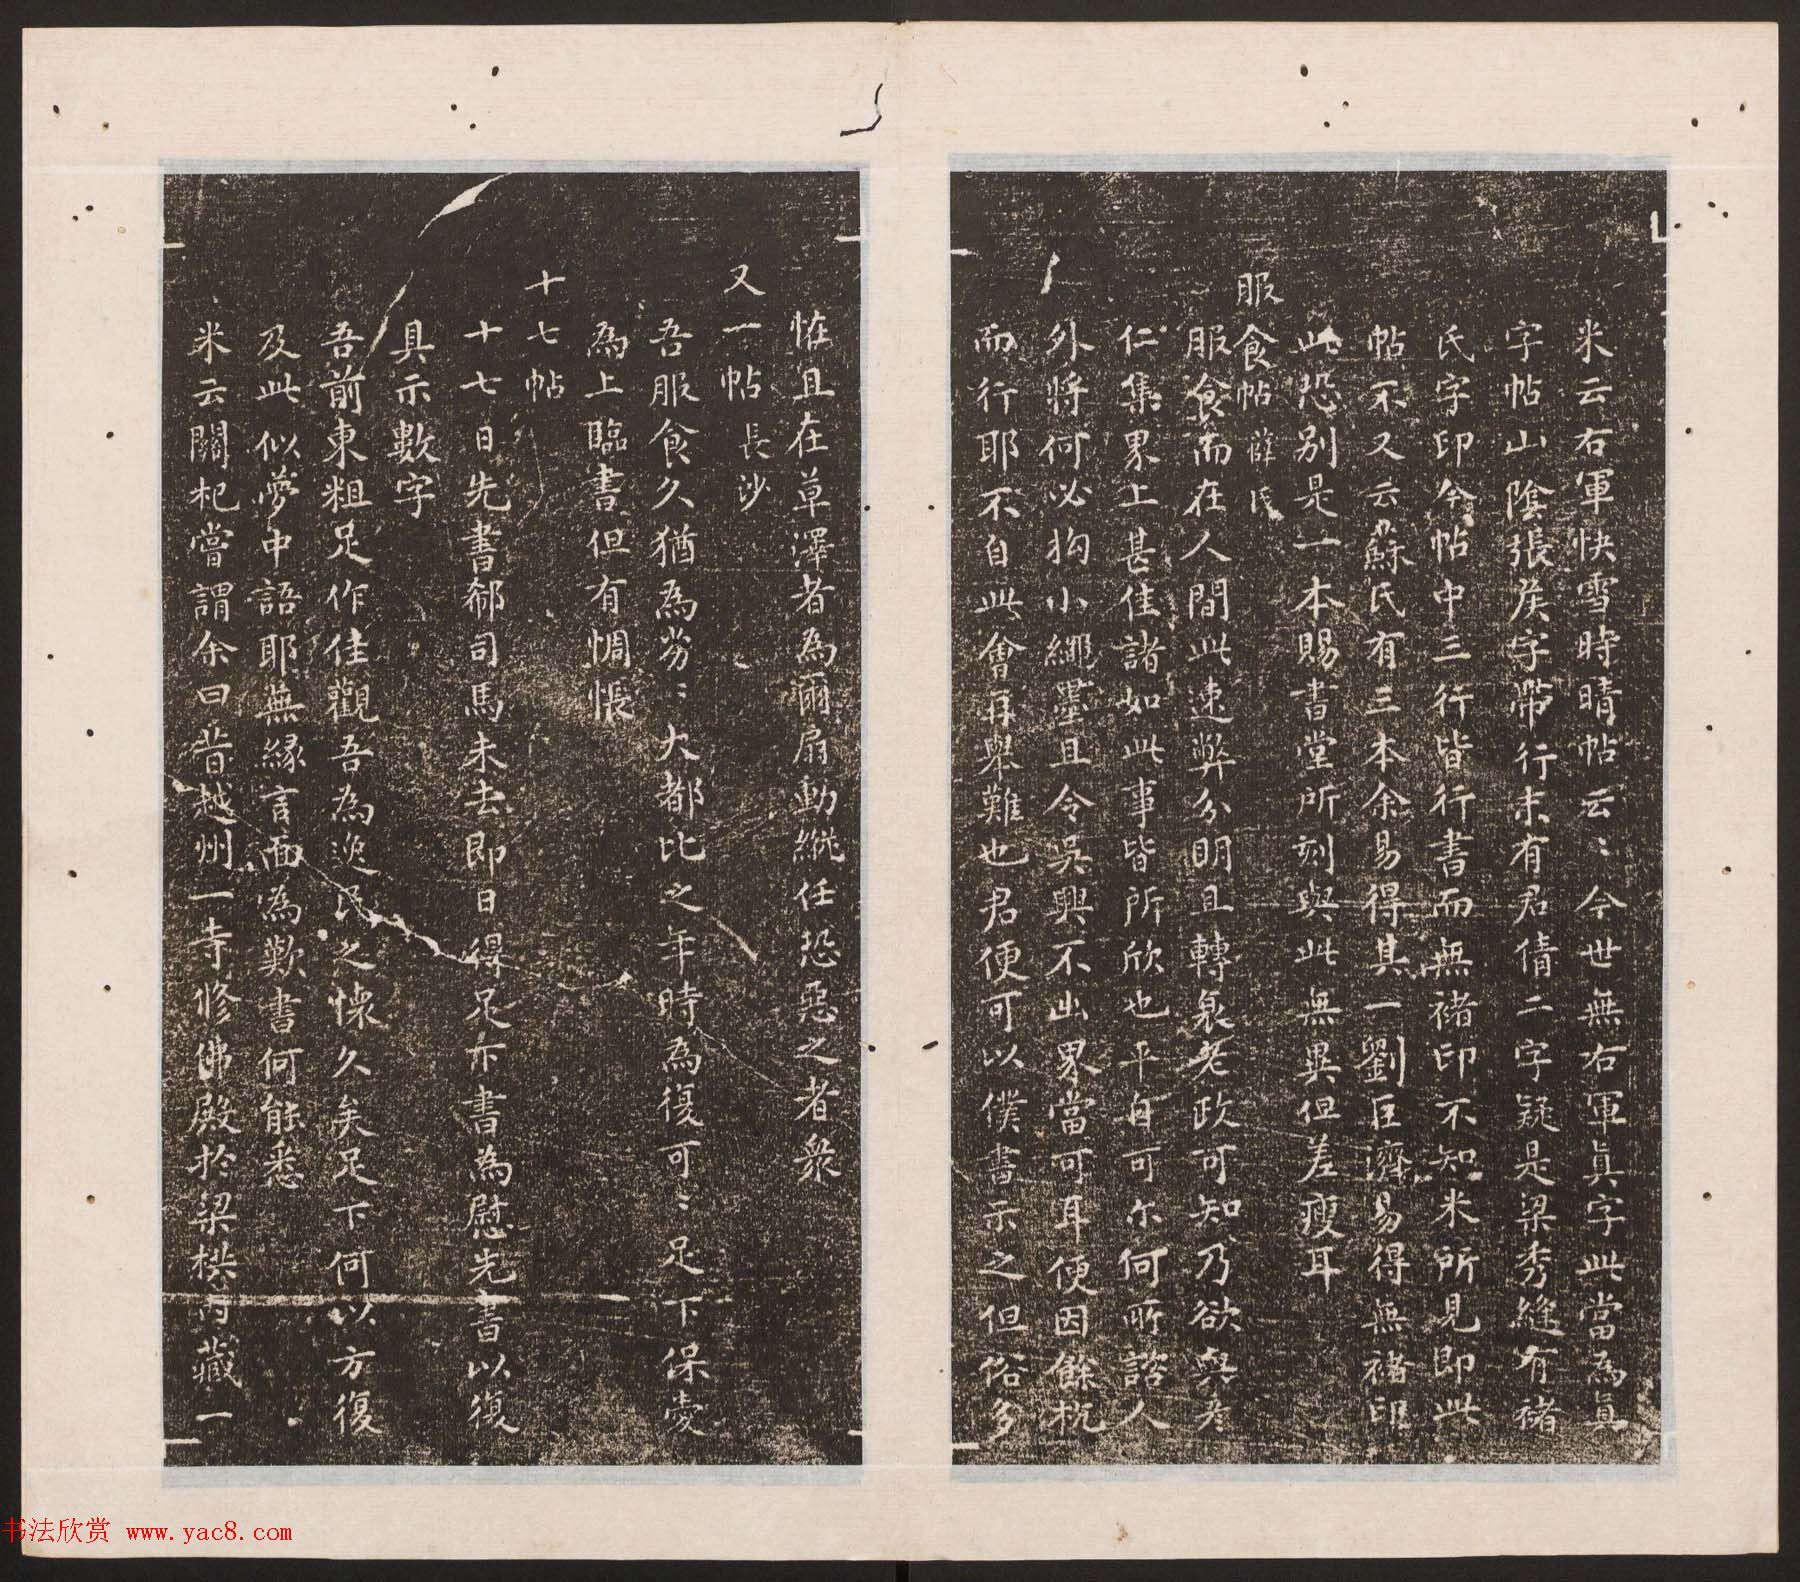 米云右軍快雪時晴帖云〻今世無右軍真字此當為真
字帖山陰張矦字帶行末有君倩二字疑是梁秀縫有褚
氏字印今帖中三行皆行書而無褚印不知米所見即此
帖不又云蘇氏有三本余易得其一劉巨濟易得無褚印
此恐別是一本賜書堂所刻與此無異但差瘦耳
服食帖 薛氏
服食而在人間此速弊分明且轉衰老政可知乃欲與彥
仁集界上甚佳諸如此事皆所欣也平自可尒何所諮人
外將何必拘小繩墨且令吳興不出界當可耳便因餘杭
而行耶不自此會再舉難也君便可以僕書示之但俗多
恠且在草澤者為爾扇動縱任恐惡之者眾
又一帖 長沙
吾服食久猶為劣〻大都比之年時為復可〻足下保愛
為上臨書但有惆悵
十七帖
十七日先書郗司馬未去即日得足下書為慰先書以復
具示數字
吾前東粗足作佳觀吾為逸民之懷久矣足下何以方復
及此似夢中語耶無緣言面為歎書何能悉
米云關杞嘗謂余曰昔越州一寺修佛殿於梁栱內藏一
书法欣赏 www.yac8.com